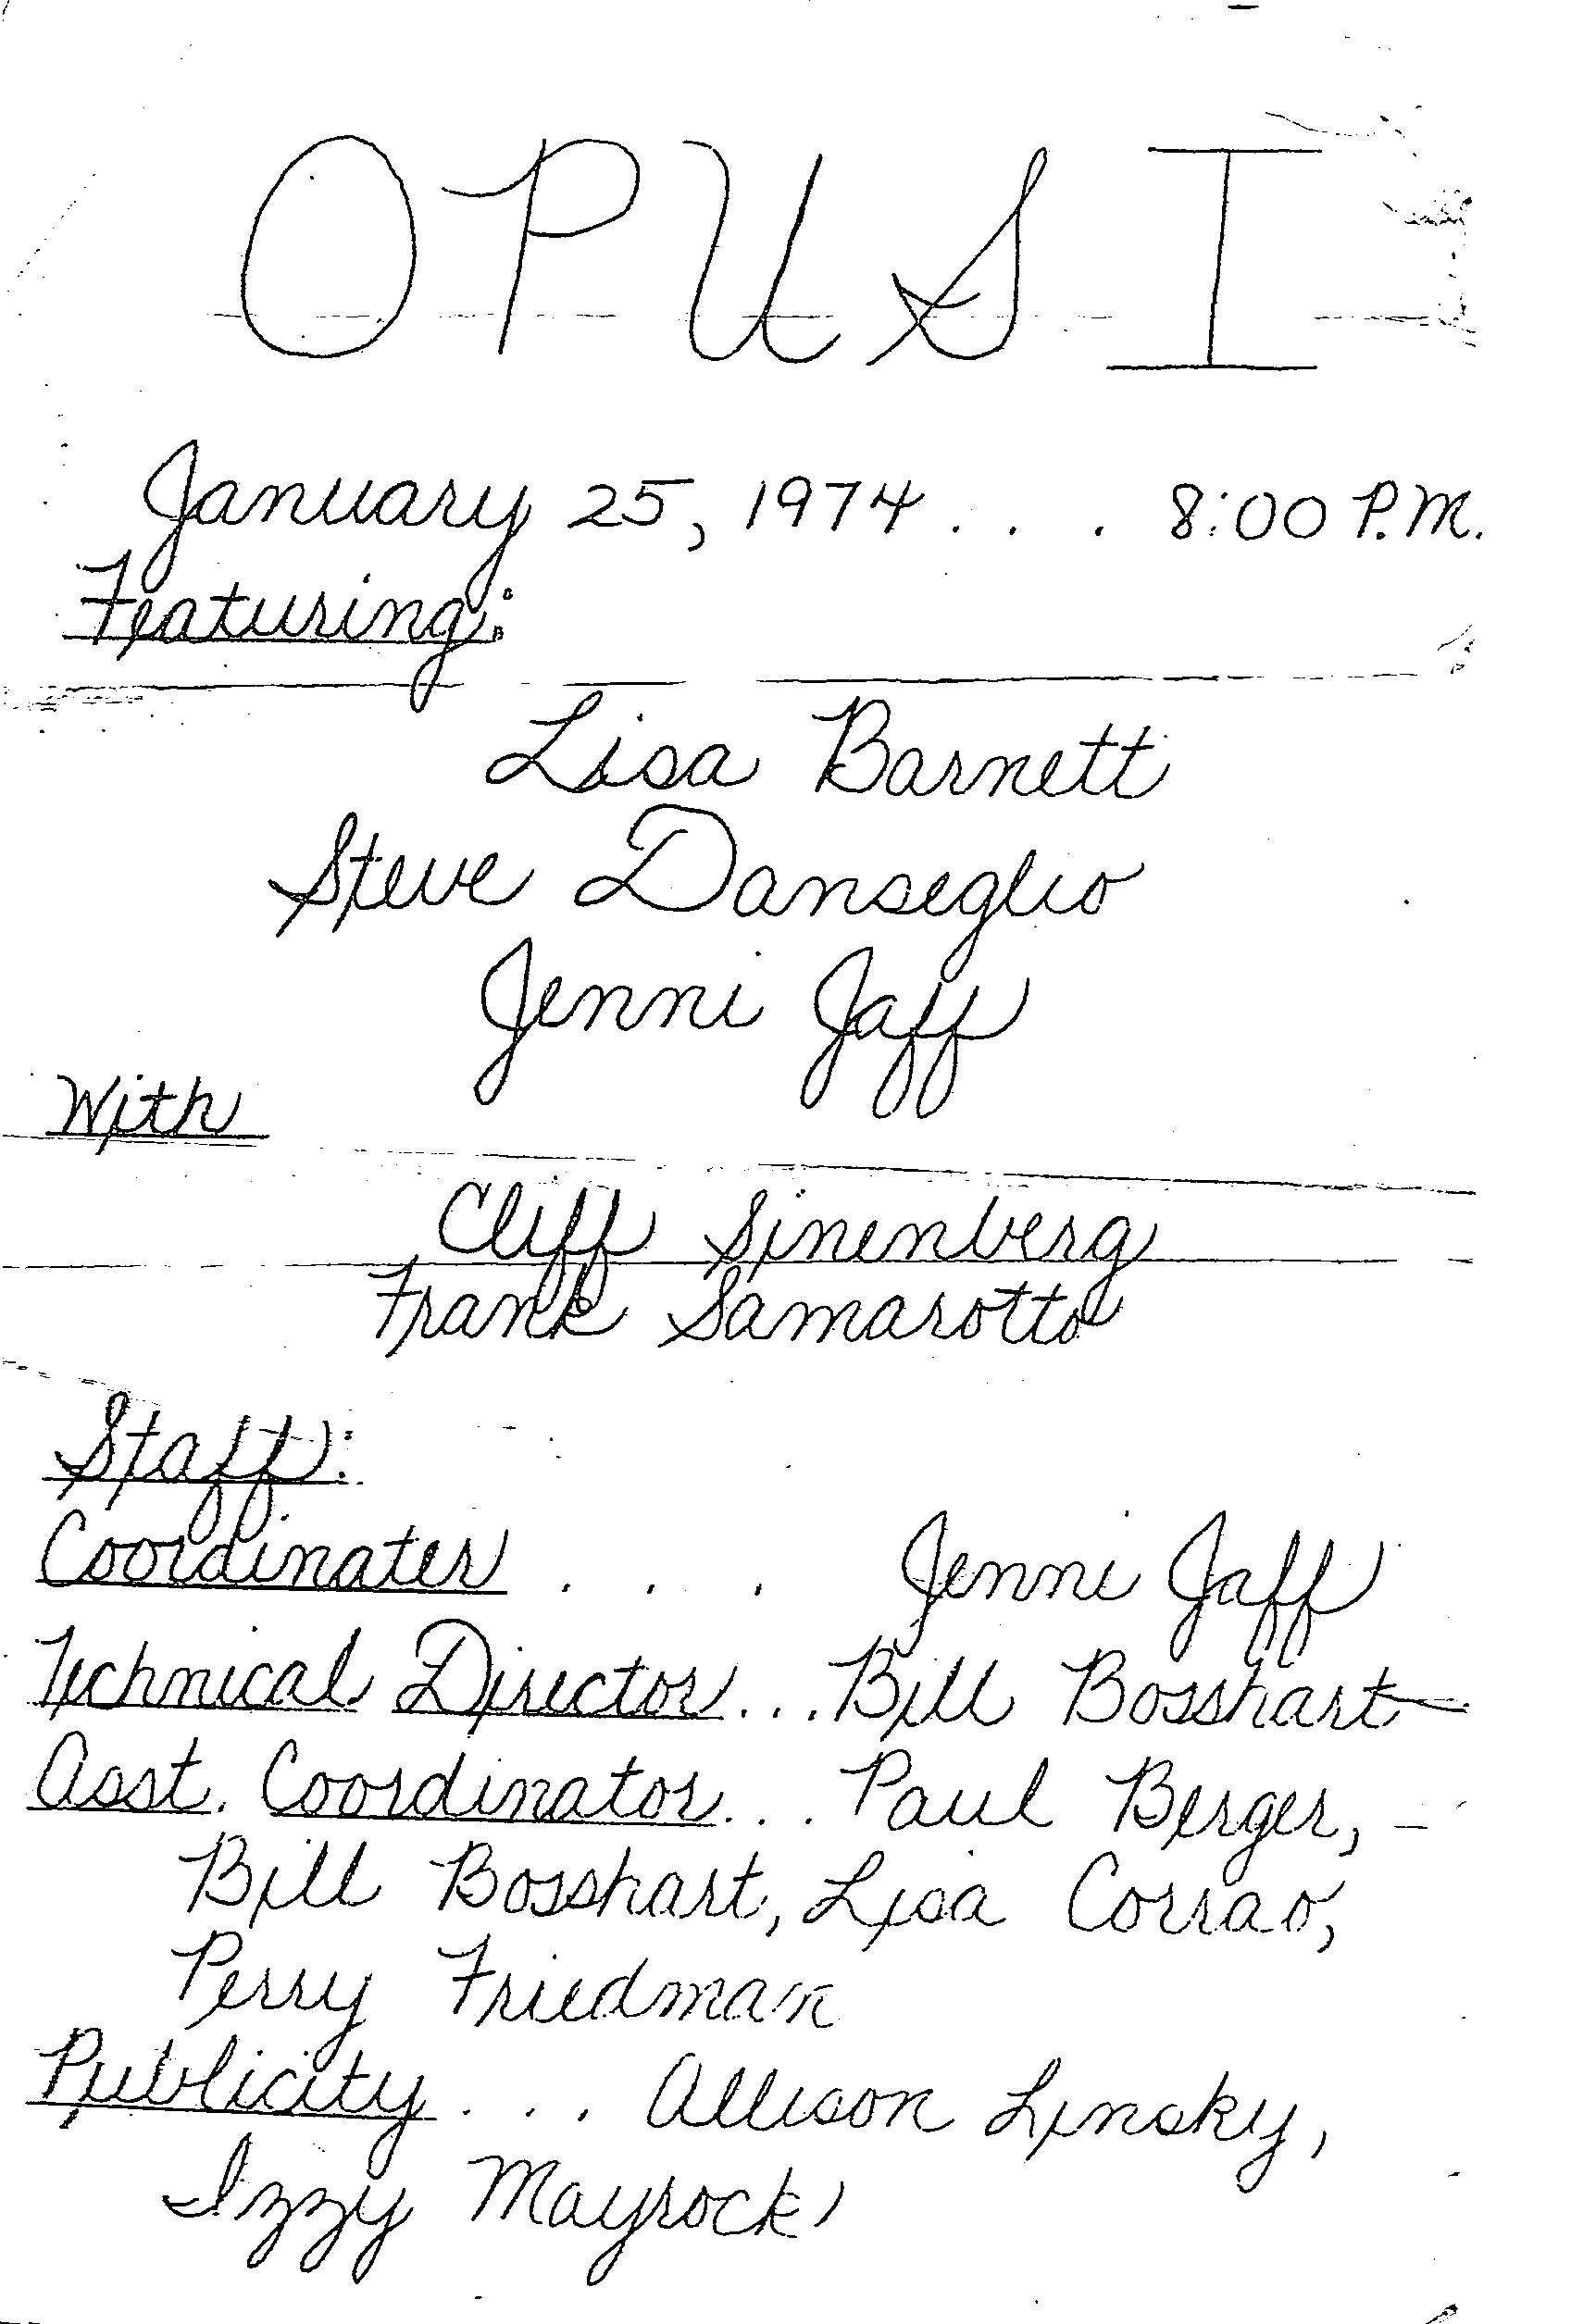 OPUS I
January 25, 1974 . . . 8:00 P.M.
Featuring:
Lisa Barnett
Steve Danseglio
Jenni Jaff
With
Cliff Sinenberg
Frank Samarotto
Staff:
Coordinater . . . Jenni Jaff
Technical Director... Bill Bosshart
Asst. Coordinator... Paul Berger,
Bill Bosshart, Lisa Corrao,
Perry Friedman
Publicity . . . Allison Linsky,
Izzy Mayrock